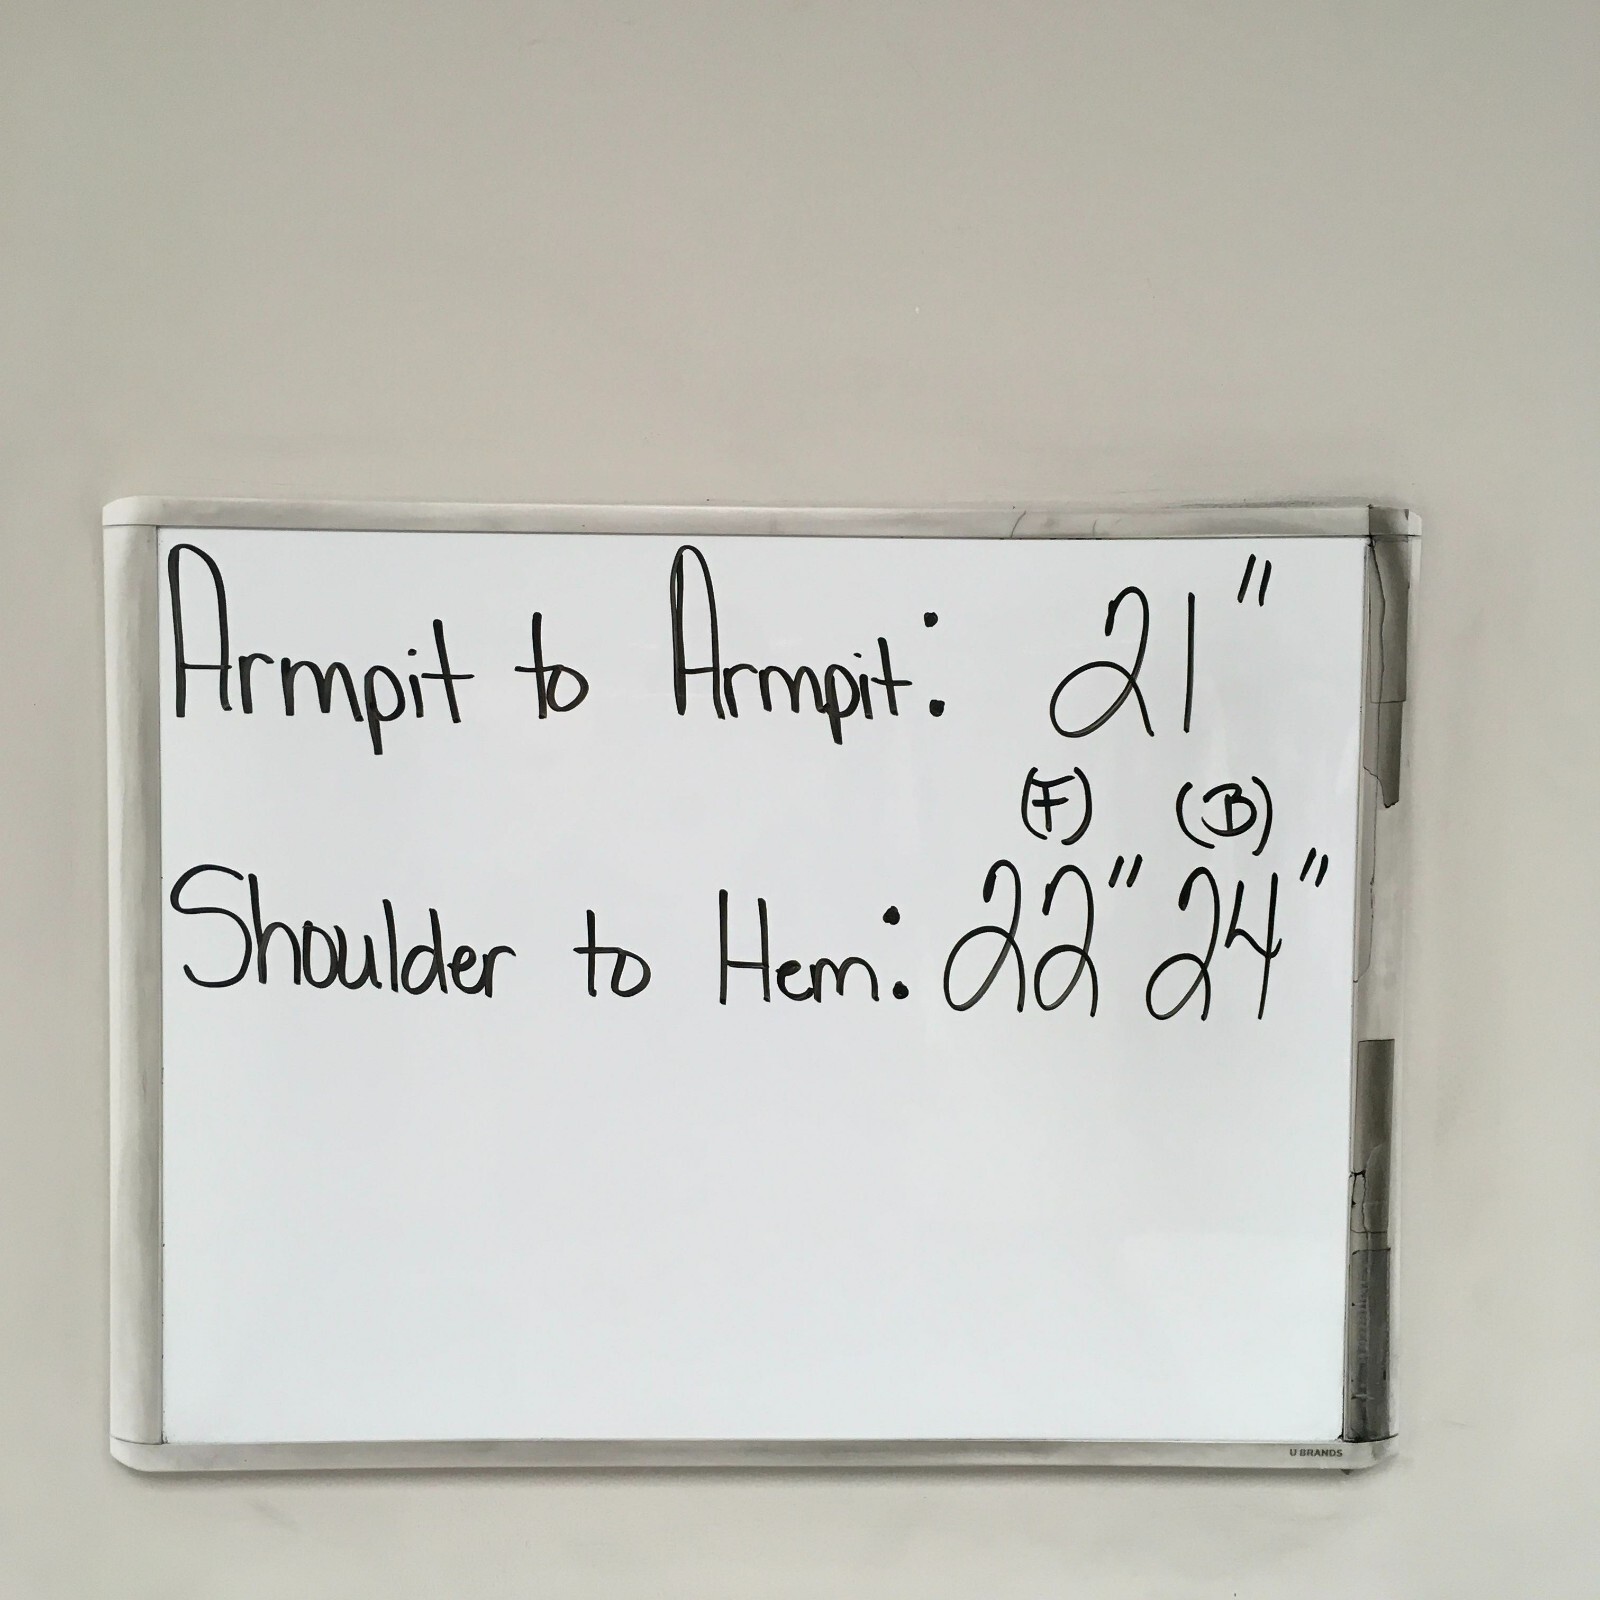 Armpit to Armpit: 21"
(F) (B)
Shoulder to Hem: 22" 24"
U BRANDS